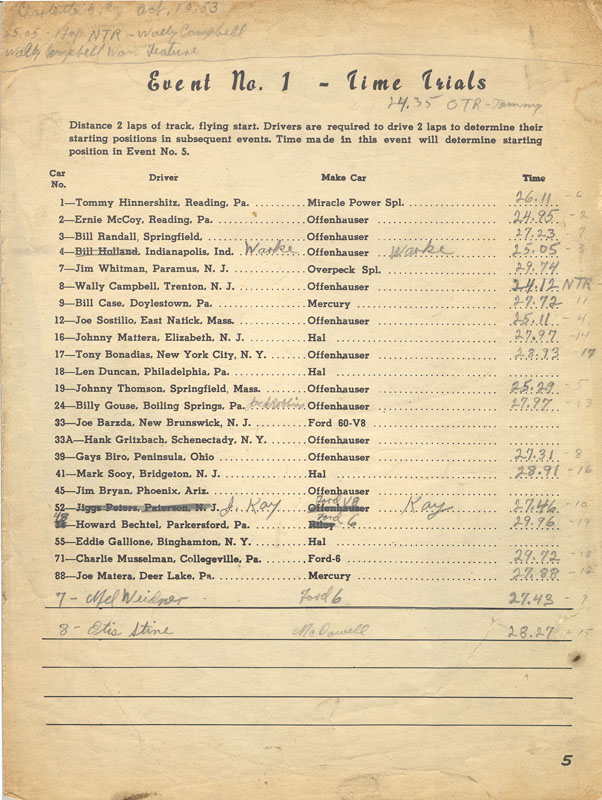 Charlotte N.C. Oct. 10, 53
25.05 - 1 lap NTR - Wally Campbell
Wally Campbell Won Feature
Event No. 1 - Time Trials
24.35 OTR - Tommy
Distance 2 laps of track, flying start. Drivers are required to drive 2 laps to determine their
starting positions in subsequent events. Time made in this event will determine starting
position in Event No. 5.
Car No. Driver Make Car Time
1—Tommy Hinnershitz, Reading, Pa. Miracle Power Spl. 26.11 - 6
2—Ernie McCoy, Reading, Pa. Offenhauser 24.95 - 2
3—Bill Randall, Springfield, Offenhauser 27.23 - 7
4—Bill Holland, Indianapolis, Ind. Warke Offenhauser Warke 25.05 - 3
7—Jim Whitman, Paramus, N. J. Overpeck Spl. 29.74
8—Wally Campbell, Trenton, N. J. Offenhauser 24.12 NTR
9—Bill Case, Doylestown, Pa. Mercury 27.72 11
12—Joe Sostilio, East Natick, Mass. Offenhauser 25.11 - 4
16—Johnny Mattera, Elizabeth, N. J. Hal 27.97 - 14
17—Tony Bonadias, New York City, N. Y. Offenhauser 28.93 - 17
18—Len Duncan, Philadelphia, Pa. Hal
19—Johnny Thomson, Springfield, Mass. Offenhauser 25.29 - 5
24—Billy Gouse, Boiling Springs, Pa. Offenhauser 27.97 - 13
33—Joe Barzda, New Brunswick, N. J. Ford 60-V8
33A—Hank Gritzbach, Schenectady, N. Y. Offenhauser
39—Gays Biro, Peninsula, Ohio Offenhauser 27.31 - 8
41—Mark Sooy, Bridgeton, N. J. Hal 28.91 - 16
45—Jim Bryan, Phoenix, Ariz. Offenhauser
52—Jiggs Peters, Paterson, N. J. J. Kay Offenhauser Ford V8 Kay 27.46 - 10
48 Howard Bechtel, Parkersford, Pa. Riley Ford 6 29.96 - 19
55—Eddie Gallione, Binghamton, N. Y. Hal
71—Charlie Musselman, Collegeville, Pa. Ford-6 29.72 - 18
88—Joe Matera, Deer Lake, Pa. Mercury 27.88 - 12
7 - Mel Weidner Ford 6 27.43 - 9
8 - Otis Stine McDowell 28.27 - 15
5